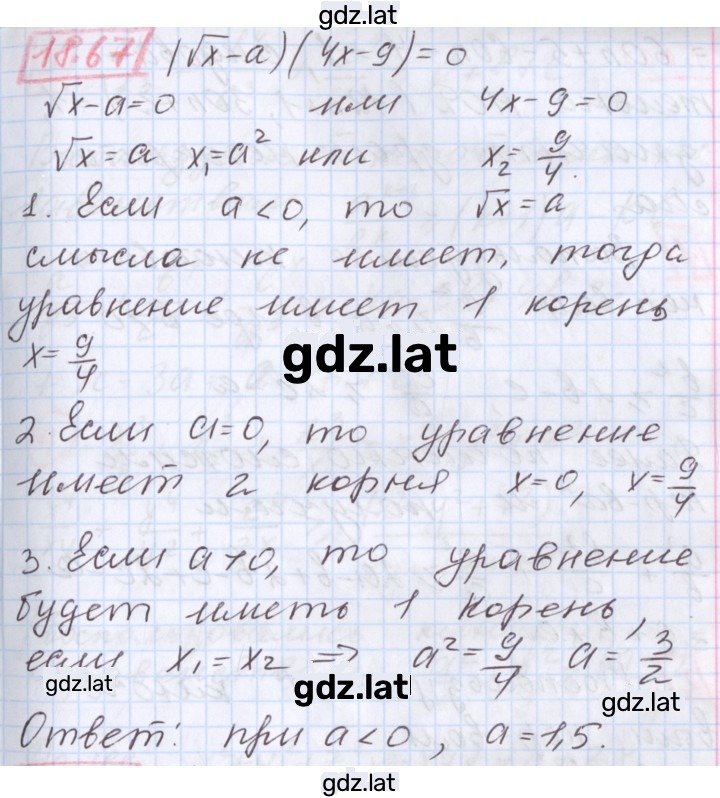 gdz.lat
18.67 (√x-a)(4x-9)=0
√x-a=0 или 4x-9=0
√x=a x₁=a² или x₂=9/4.
1. Если a<0, то √x=a
смысла не имеет, тогда
уравнение имеет 1 корень
x=9/4
gdz.lat
2. Если a=0, то уравнение
имеет 2 корня x=0, x=9/4
3. Если a>0, то уравнение
будет иметь 1 корень,
если x₁=x₂ ⇒ a²=9/4 a=3/2
gdz.lat gdz.lat gdz.lat
Ответ: при a<0, a=1,5.
gdz.lat